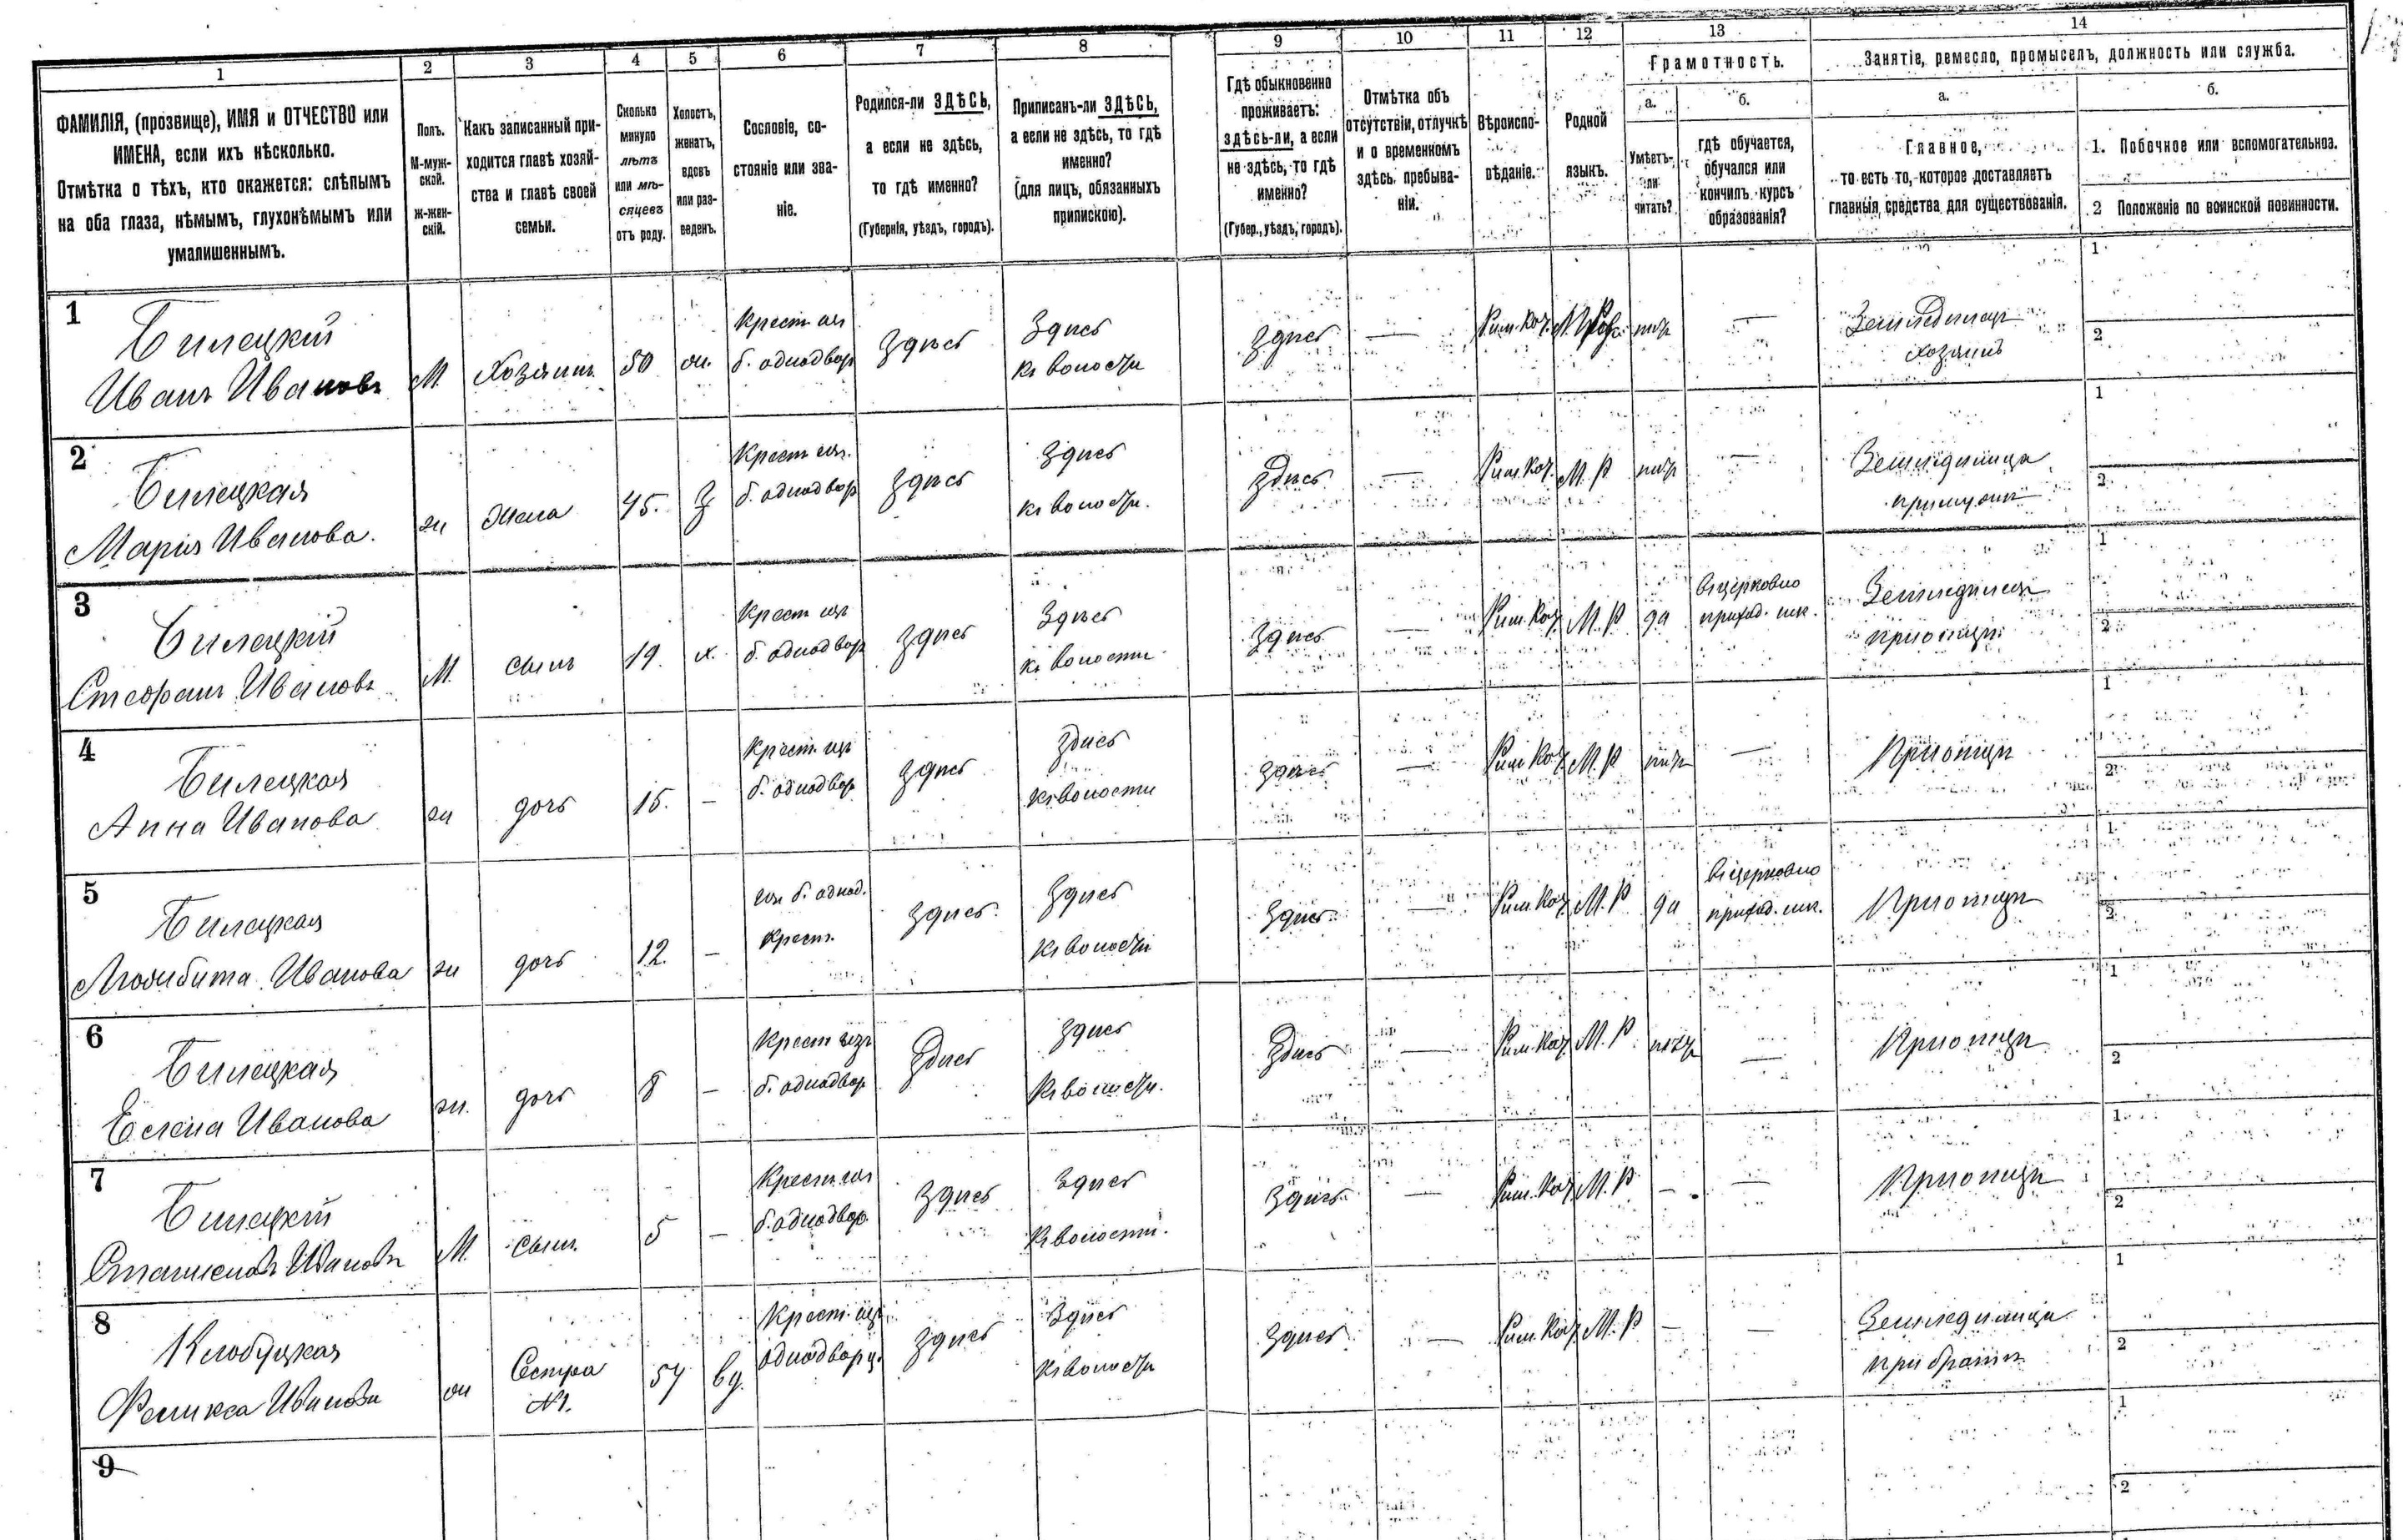 1 2 3 4 5 6 7 8 9 10 11 12 13 14
ФАМИЛІЯ, (прозвище), ИМЯ и ОТЧЕСТВО или
ИМЕНА, если ихъ нѣсколько.
Отмѣтка о тѣхъ, кто окажется: слѣпымъ
на оба глаза, нѣмымъ, глухонѣмымъ или
умалишеннымъ.
Полъ.
М-муж-
ской.
Ж-жен-
скій.
Какъ записанный при-
ходится главѣ хозяй-
ства и главѣ своей
семьи.
Сколько
минуло
лѣтъ
или мѣ-
сяцевъ
отъ роду.
Холостъ,
женатъ,
вдовъ
или раз-
веденъ.
Сословіе, со-
стояніе или зва-
ніе.
Родился-ли ЗДѢСЬ,
а если не здѣсь,
то гдѣ именно?
(Губернія, уѣздъ, городъ).
Приписанъ-ли ЗДѢСЬ,
а если не здѣсь, то гдѣ
именно?
(для лицъ, обязанныхъ
припискою).
Гдѣ обыкновенно
проживаетъ:
здѣсь-ли, а если
не здѣсь, то гдѣ
именно?
(Губер., уѣздъ, городъ).
Отмѣтка объ
отсутствіи, отлучкѣ
и о временномъ
здѣсь пребыва-
ніи.
Вѣроиспо-
вѣданіе.
Родной
языкъ.
Грамотность.
а.
Умѣетъ-
ли
читать?
б.
гдѣ обучается,
обучался или
кончилъ курсъ
образованія?
Занятіе, ремесло, промыселъ, должность или служба.
а.
Главное,
то есть то, которое доставляетъ
главныя средства для существованія.
б.
1. Побочное или вспомогательное.
2 Положеніе по воинской повинности.
1
Билецкій
Иванъ Ивановъ
М
Хозяинъ
50
ж.
Крест изъ
б. однодвор
Здѣсь
Здѣсь
къ волости
Здѣсь
—
Рим. Кат.
нѣтъ
—
Земледѣлецъ
хозяинъ
1
2
2
Билецкая
Марія Иванова.
ж
Жена
45.
З
Крест изъ.
б. однодвор
Здѣсь
Здѣсь
къ волости.
Здѣсь
—
Рим. Кат.
М. Р
нѣтъ
—
Земледѣлица
при мужѣ
1
2
3
Билецкій
Стефанъ Ивановъ
М.
сынъ
19.
х.
Крест изъ
б. однодвор
Здѣсь
Здѣсь
къ волости
Здѣсь
—
Рим. Кат.
М. Р
да
въ церковно
приход. шк.
Земледѣлецъ
при отцѣ
1
2
4
Билецкая
Анна Иванова
ж
дочь
15.
—
Крест изъ
б. однодвор
Здѣсь
Здѣсь
къ волости
Здѣсь
—
Рим Кат
М. Р
нѣтъ
—
При отцѣ
1
2
5
Билецкая
Иванова
ж
дочь
12.
—
изъ б. однод.
Крест.
Здѣсь
Здѣсь
къ волости
Здѣсь
—
Рим. Кат
М. Р
да
въ церковно
приход. шк.
При отцѣ
1
2
6
Билецкая
Елена Иванова
ж.
дочь
8
—
Крест изъ
б. однодвор
Здѣсь
Здѣсь
къ волости.
Здѣсь
—
Рим. Кат
М. Р.
нѣтъ
—
При отцѣ
1
2
7
Билецкій
Станиславъ Ивановъ
М.
сынъ.
5
—
Крест. изъ
б. однодвор.
Здѣсь
Здѣсь
къ волости.
Здѣсь
—
Рим. Кат
М. Р
—
—
При отцѣ
1
2
8
Клобуцкая
Феликса Иванова
ж
Сестра
№1.
54
вд.
Крест. изъ
однодворц.
Здѣсь
Здѣсь
къ волости
Здѣсь
—
Рим. Кат
М. Р
—
—
Земледѣлица
при братѣ
1
2
9
1
2